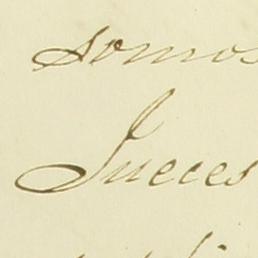 somos
Jueces